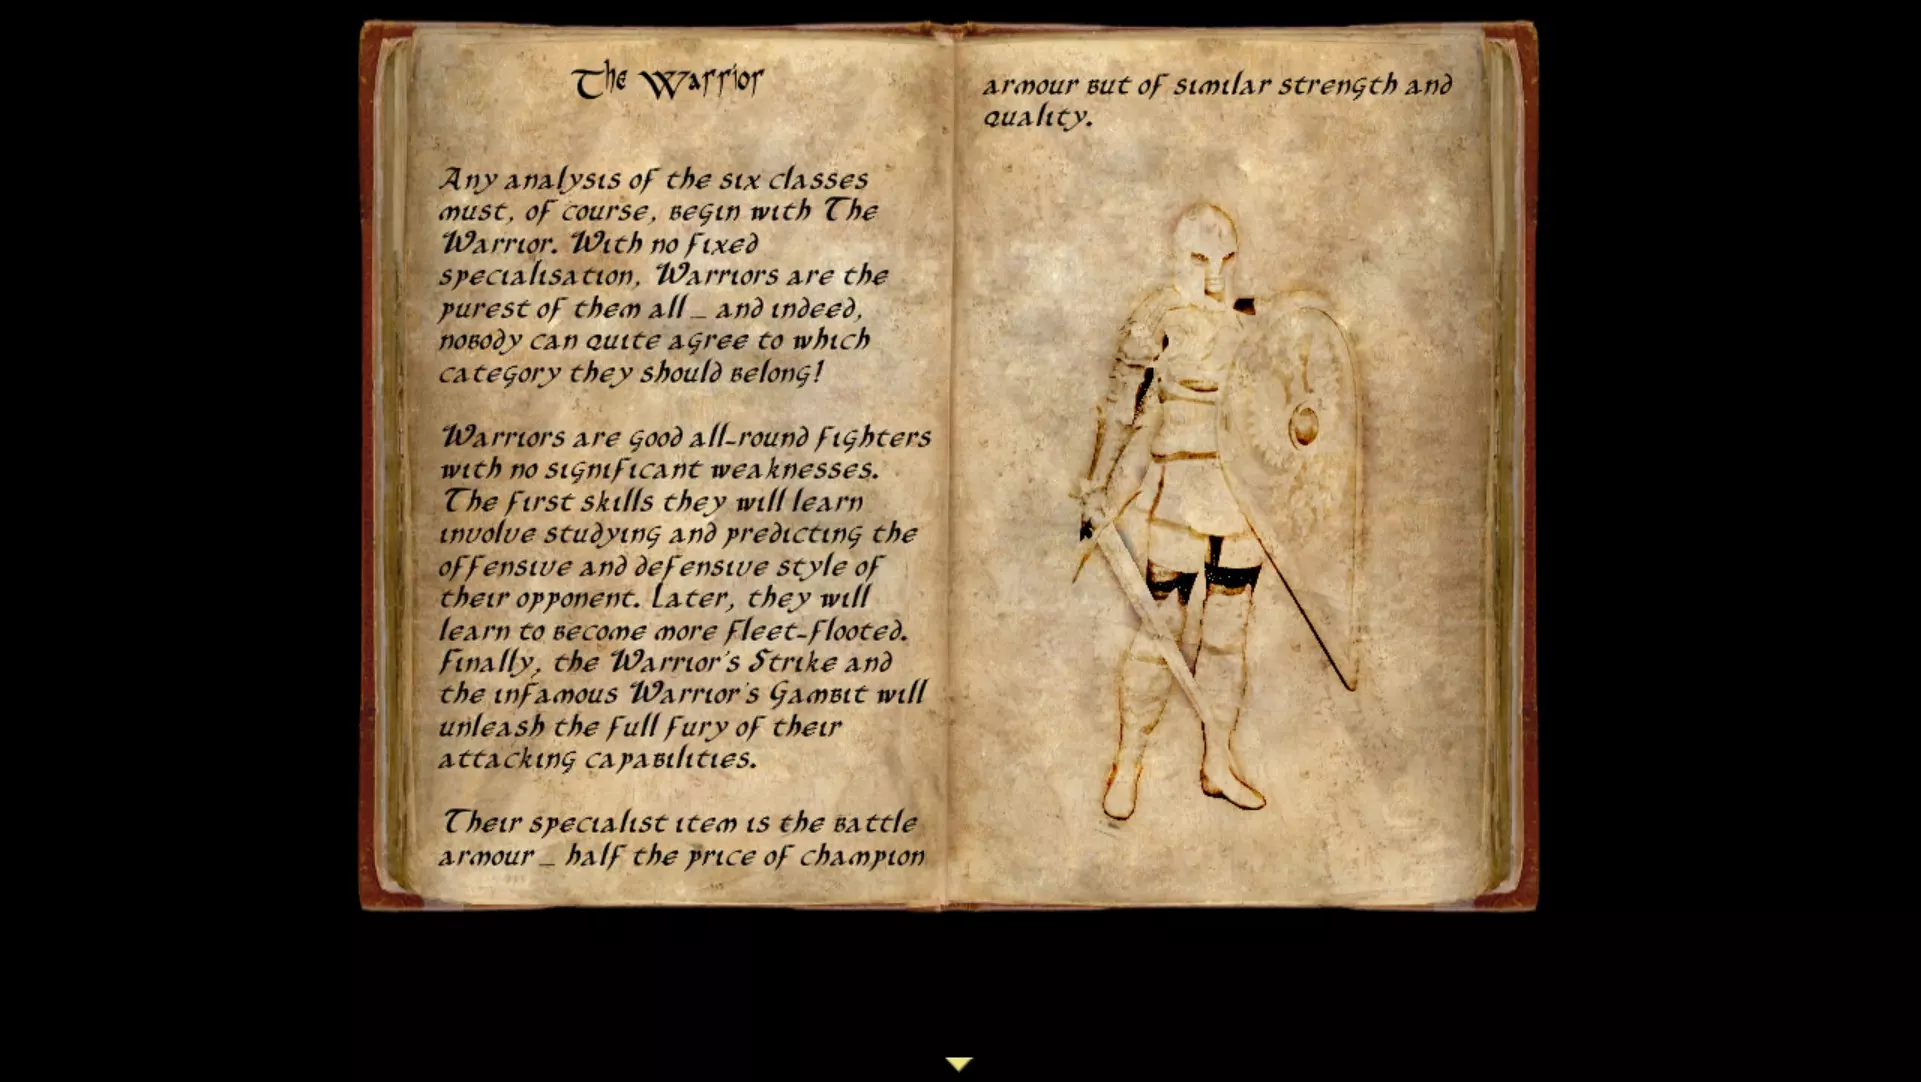 The Warrior
Any analysis of the six classes
must, of course, begin with The
Warrior. With no fixed
specialisation, Warriors are the
purest of them all _ and indeed,
nobody can quite agree to which
category they should belong!
Warriors are good all-round fighters
with no significant weaknesses.
The first skills they will learn
involve studying and predicting the
offensive and defensive style of
their opponent. Later, they will
learn to become more fleet-flooted.
Finally, the Warrior's Strike and
the infamous Warrior's Gambit will
unleash the full fury of their
attacking capabilities.
Their specialist item is the battle
armour _ half the price of champion
armour but of similar strength and
quality.